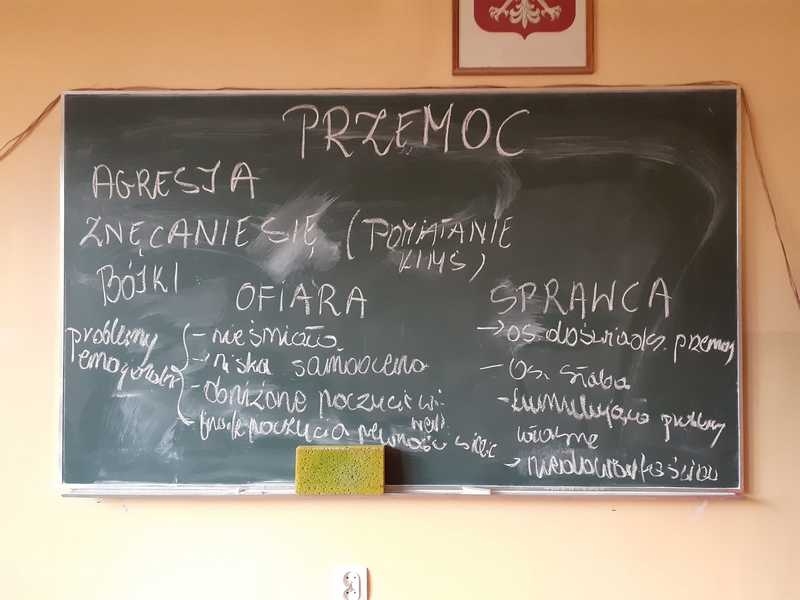 PRZEMOC
AGRESJA
ZNĘCANIE SIĘ (POMIATANIE
KIMŚ)
BÓJKI
OFIARA
problemy
emocjonalne
- nieśmiała
- niska samoocena
- obniżone poczucie
- brak poczucia pewności siebie
SPRAWCA
→ os. doświadcz. przemoc
- Os. słaba
- kumulująca problemy
własne